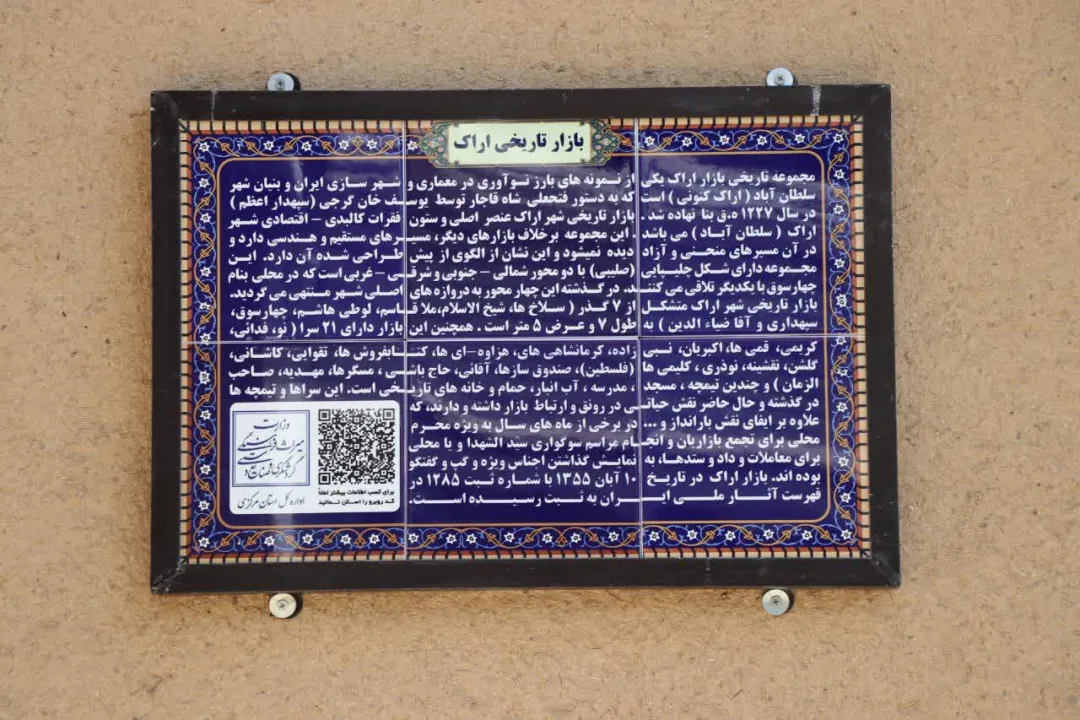 بازار تاریخی اراک
مجموعه تاریخی بازار اراک یکی از نمونه های بارز نوآوری در معماری و شهر سازی ایران و بنیان شهر
سلطان آباد ( اراک کنونی ) است که به دستور فتحعلی شاه قاجار توسط یوسف خان گرجی (سپهدار اعظم )
در سال ۱۲۲۷ ه.ق بنا نهاده شد . بازار تاریخی شهر اراک عنصر اصلی و ستون فقرات کالبدی – اقتصادی شهر
اراک ( سلطان آباد ) می باشد . این مجموعه برخلاف بازارهای دیگر، مسیرهای مستقیم و هندسی دارد و
در آن مسیرهای منحنی و آزاد دیده نمیشود و این نشان از الگوی از پیش طراحی شده آن دارد. این
مجموعه دارای شکل چلیپایی (صلیبی) با دو محور شمالی – جنوبی و شرقی – غربی است که در محلی بنام
چهارسوق با یکدیگر تلاقی می کنند. در گذشته این چهار محور به دروازه های اصلی شهر منتهی می گردید.
بازار تاریخی شهر اراک متشکل از ۷ گذر ( سلاخ ها، شیخ الاسلام،ملا قاسم، لوطی هاشم، چهارسوق،
سپهداری و آقا ضیاء الدین ) به طول ۷ و عرض ۵ متر است . همچنین این بازار دارای ۲۱ سرا ( نو، فدائی،
کریمی، قمی ها، اکبریان، نبی زاده، کرمانشاهی های، هزاوه-ای ها، کتابفروش ها، تقوایی، کاشانی،
گلشن، نقشینه، نوذری ، کلیمی ها (فلسطین)، صندوق سازها، آقائی، حاج باشی ، مسگرها، مهدیه، صاحب
الزمان ) و چندین تیمچه ، مسجد ، مدرسه ، آب انبار، حمام و خانه های تاریخی است. این سراها و تیمچه ها
در گذشته و حال حاضر نقش حیاتی در رونق و ارتباط بازار داشته و دارند، که
علاوه بر ایفای نقش بارانداز و ... در برخی از ماه های سال به ویژه محرم
محلی برای تجمع بازاریان و انجام مراسم سوگواری سید الشهدا و یا محلی
برای معاملات و داد و ستدها، به نمایش گذاشتن اجناس ویژه و گپ و گفتگو
بوده اند. بازار اراک در تاریخ ۱۰ آبان ۱۳۵۵ با شماره ثبت ۱۲۸۵ در
فهرست آثار ملی ایران به ثبت رسیده است.
وزارت
میراث فرهنگی
گردشگری و صنایع دستی
اداره کل استان مرکزی
برای کسب اطلاعات بیشتر لطفاً
کد روبرو را اسکن نمائید